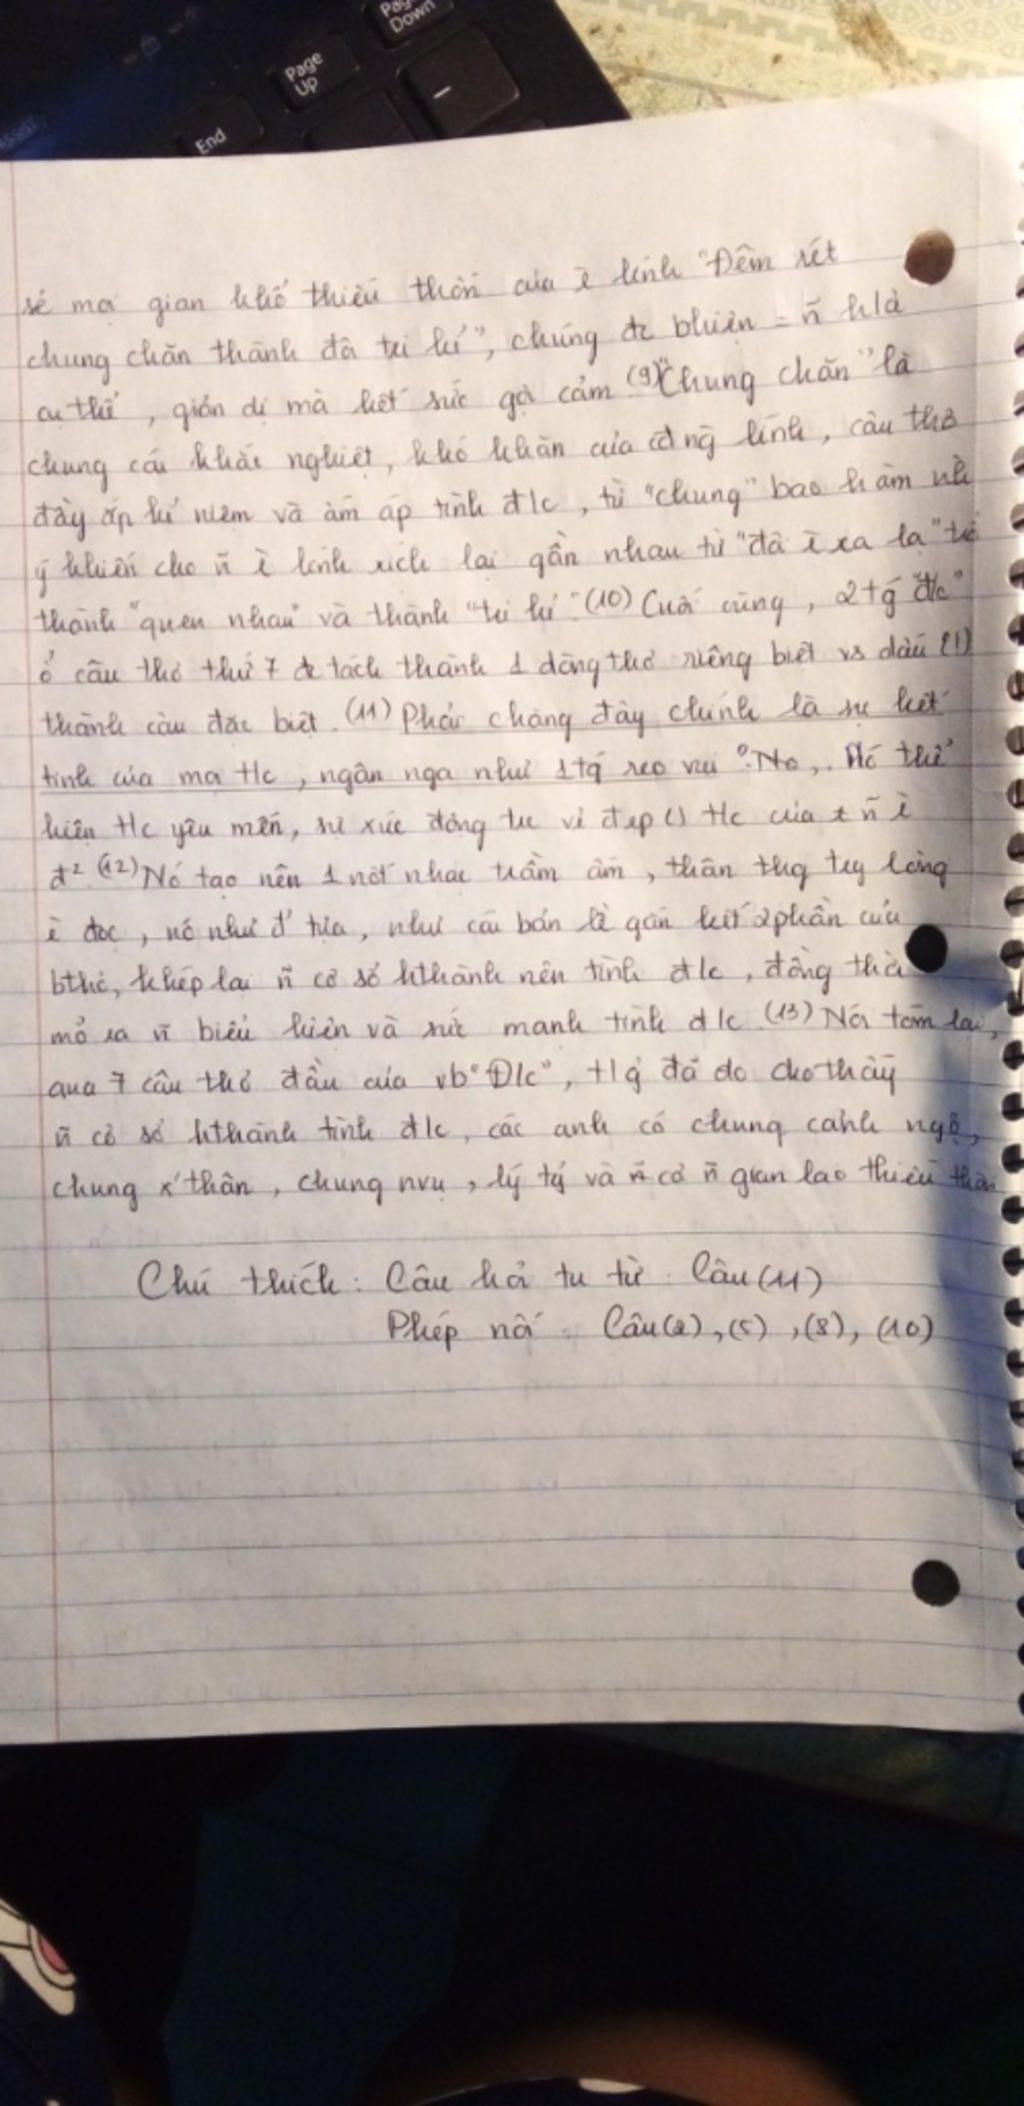 Page Down
Page Up
End
sẻ mọi gian khổ thiếu thốn của ĩ lính "Đêm rét
chung chăn thành đôi tri kỉ", chúng đc bhiện = ñ h/ả
cụ thể, giản dị mà hết sức gợi cảm (9)"Chung chăn" là
chung cái khắc nghiệt, khó khăn của cđ ng lính, câu thơ
đầy ắp kỉ niệm và ấm áp tình đ/c, từ "chung" bao hàm
ý khiến cho ñ ĩ lính xích lại gần nhau từ "đôi ĩ xa lạ" trở
thành "quen nhau" và thành "tri kỉ". (10) Cuối cùng, 2 tg "đ/c"
ở câu thơ thứ 7 đc tách thành 1 dòng thơ riêng biệt vs dấu (!)
thành câu đặc biệt. (11) Phải chăng đây chính là sự kết
tinh của mọi t/c, ngân nga như 1 tg reo vui ? Nó thể
hiện t/c yêu mến, sự xúc động tr vẻ đẹp t/c của ñ ĩ
đ². (12) Nó tạo nên 1 nốt nhạc trầm ấm, thân thg trg lòng
ĩ đọc, nó như đ' tựa, như cái bản lề gắn kết 2 phần của
bthơ, khép lại ñ cơ sở hthành nên tình đ/c, đồng thời
mở ra ñ biểu hiện và sức mạnh tình đ/c. (13) Nói tóm lại,
qua 7 câu thơ đầu của vb "Đ/c", t/g đã cho thấy
ñ cơ sở hthành tình đ/c, các anh có chung cảnh ngộ,
chung x' thân, chung nvụ, lý tg và cả ñ gian lao thiếu thốn
Chú thích: Câu hỏi tu từ: Câu (11)
Phép nối: Câu (2), (5), (8), (10)